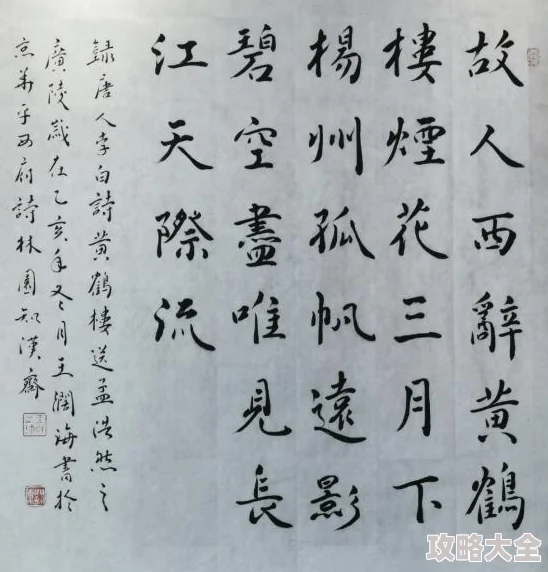 故人西辭黃鶴
樓煙花三月下
楊州孤帆遠影
碧空盡唯見長
江天際流
錄唐人李白詩黃鶴樓送孟浩然之
廣陵歲在亥年冬月王闊海書於
京華平西府詩林園知漢齋
攻略大全